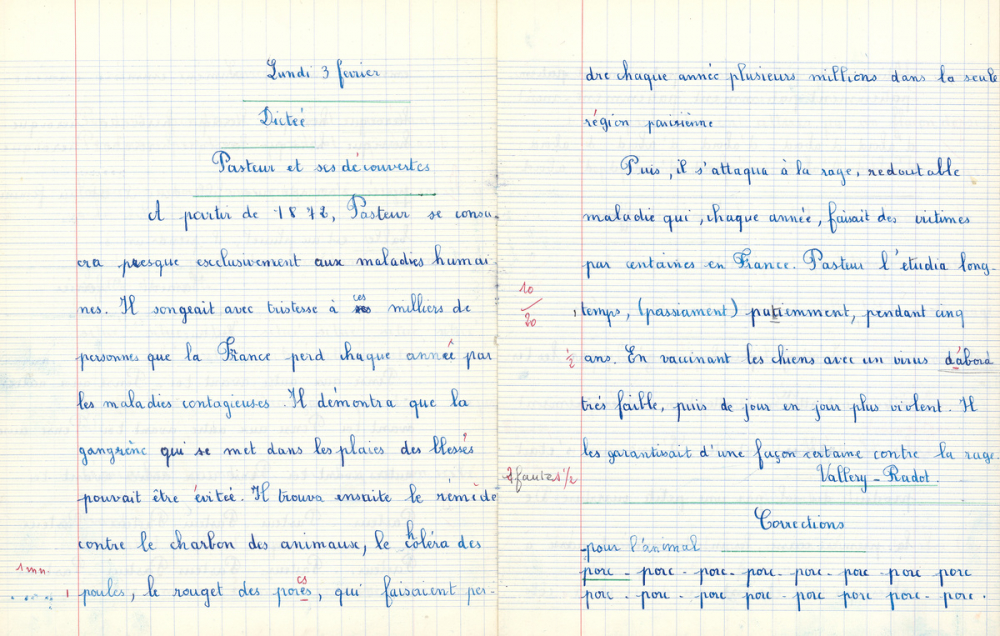 Lundi 3 fevrier
Dictée
Pasteur et ses découvertes
A partir de 1872, Pasteur se consa-
cra presque exclusivement aux maladies humai-
nes. Il songeait avec tristesse à ces milliers de
personnes que la France perd chaque année par
les maladies contagieuses. Il démontra que la
gangrène qui se met dans les plaies des blessés
pouvait être évitée. Il trouva ensuite le rémède
contre le charbon des animaux, le choléra des
1 mn.
poules, le rouget des porcs, qui faisaient per-
dre chaque année plusieurs millions dans la seule
région parisienne
Puis, il s'attaqua à la rage, redoutable
maladie qui, chaque année, faisait des victimes
par centaines en France. Pasteur l'étudia long-
10/20
temps, (passiament) patiemment, pendant cinq
1/2 ans. En vaccinant les chiens avec un virus dábord
trés faible, puis de jour en jour plus violent. Il
les garantissait d'une façon certaine contre la rage.
2 fautes 1/2
Vallery-Radot.
Corrections
-pour l'animal
porc - porc - porc - porc - porc - porc - porc porc
porc - porc - porc porc - porc porc porc - porc.